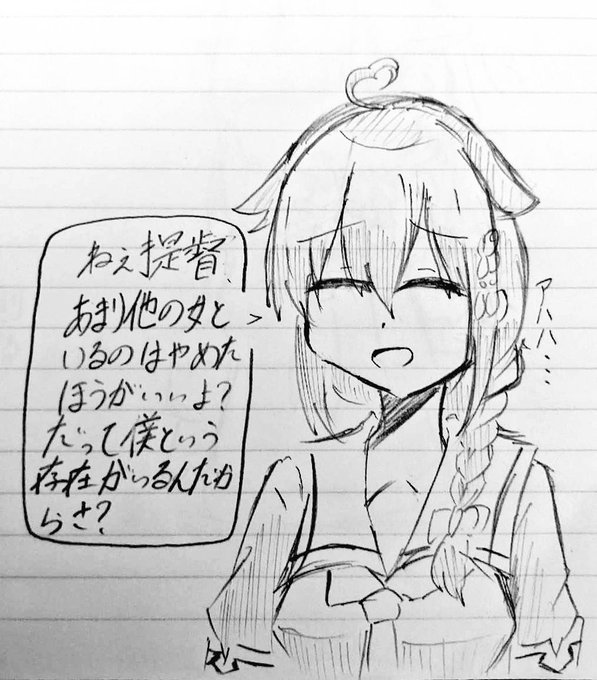 ねぇ提督、
あまり他の女と
いるのはやめた
ほうがいいよ?
だって僕という
存在がいるんだか
らさ?
アハハ…